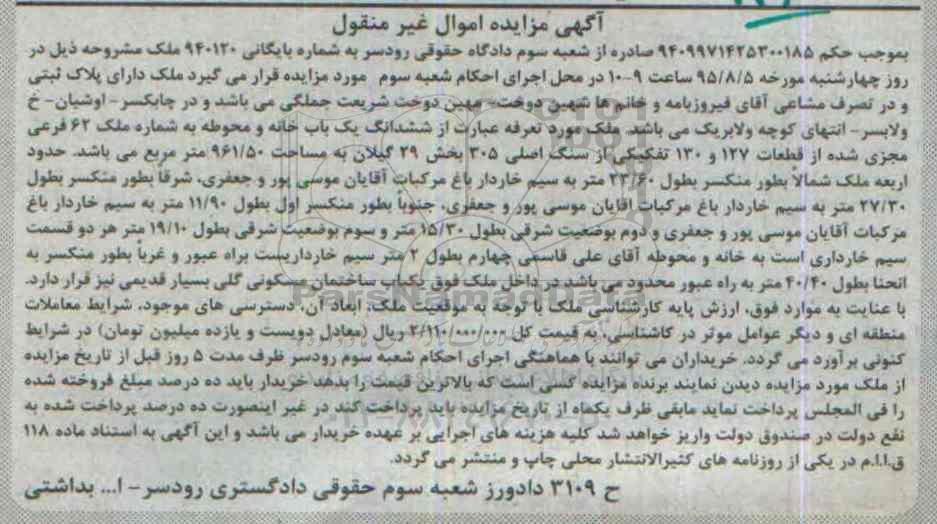 آگهی مزایده اموال غیر منقول
بموجب حکم ۹۴۰۹۹۷۱۴۲۵۳۰۰۱۸۵ صادره از شعبه سوم دادگاه حقوقی رودسر به شماره بایگانی ۹۴۰۱۲۰ ملک مشروحه ذیل در
روز چهارشنبه مورخه ۹۵/۸/۵ ساعت ۹-۱۰ در محل اجرای احکام شعبه سوم مورد مزایده قرار می گیرد ملک دارای پلاک ثبتی
و در تصرف مشاعی آقای فیروزبامه و خانم ها شهین دوخت- مهین دوخت شریعت جملگی می باشد و در چابکسر- اوشیان- خ
ولابسر- انتهای کوچه ولابریک می باشد. ملک مورد تعرفه عبارت از ششدانگ یک باب خانه و محوطه به شماره ملک ۶۲ فرعی
مجزی شده از قطعات ۱۲۷ و ۱۳۰ تفکیکی از سنگ اصلی ۳۰۵ بخش ۲۹ گیلان به مساحت ۹۶۱/۵۰ متر مربع می باشد. حدود
اربعه ملک شمالاً بطور منکسر بطول ۲۳/۶۰ متر به سیم خاردار باغ مرکبات آقایان موسی پور و جعفری، شرقاً بطور منکسر بطول
۲۷/۳۰ متر به سیم خاردار باغ مرکبات آقایان موسی پور و جعفری، جنوباً بطور منکسر اول بطول ۱۱/۹۰ متر به سیم خاردار باغ
مرکبات آقایان موسی پور و جعفری و دوم بوضعیت شرقی بطول ۱۵/۳۰ متر و سوم بوضعیت شرقی بطول ۱۹/۱۰ متر هر دو قسمت
سیم خارداری است به خانه و محوطه آقای علی قاسمی چهارم بطول ۲ متر سیم خارداریست براه عبور و غرباً بطور منکسر به
انحنا بطول ۴۰/۴۰ متر به راه عبور محدود می باشد در داخل ملک فوق یک باب ساختمان مسکونی گلی بسیار قدیمی نیز قرار دارد.
با عنایت به موارد فوق، ارزش پایه کارشناسی ملک با توجه به موقعیت ملک، ابعاد آن، دسترسی های موجود، شرایط معاملات
منطقه ای و دیگر عوامل موثر در کاشناسی، به قیمت کل ۲/۱۱۰/۰۰۰/۰۰۰ ریال (معادل دویست و یازده میلیون تومان) در شرایط
کنونی برآورد می گردد. خریداران می توانند با هماهنگی اجرای احکام شعبه سوم رودسر ظرف مدت ۵ روز قبل از تاریخ مزایده
از ملک مورد مزایده دیدن نمایند برنده مزایده کسی است که بالاترین قیمت را بدهد خریدار باید ده درصد مبلغ فروخته شده
را فی المجلس پرداخت نماید مابقی ظرف یکماه از تاریخ مزایده باید پرداخت کند در غیر اینصورت ده درصد پرداخت شده به
نفع دولت در صندوق دولت واریز خواهد شد کلیه هزینه های اجرایی بر عهده خریدار می باشد و این آگهی به استناد ماده ۱۱۸
ق.ا.ا.م در یکی از روزنامه های کثیرالانتشار محلی چاپ و منتشر می گردد.
ح ۳۱۰۹ دادورز شعبه سوم حقوقی دادگستری رودسر- ا... بداشتی
ParsNamadData